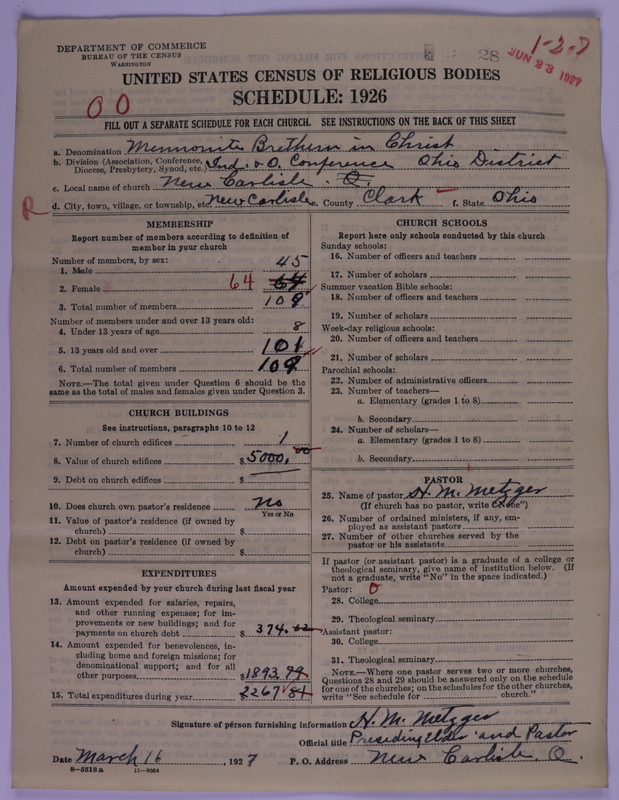 DEPARTMENT OF COMMERCE
BUREAU OF THE CENSUS
WASHINGTON
28
1-2-7
JUN 23 1927
UNITED STATES CENSUS OF RELIGIOUS BODIES
SCHEDULE: 1926
0 0
FILL OUT A SEPARATE SCHEDULE FOR EACH CHURCH. SEE INSTRUCTIONS ON THE BACK OF THIS SHEET
a. Denomination Mennonite Brethern in Christ
b. Division (Association, Conference, Diocese, Presbytery, Synod, etc.) Ind. & O. Conference Ohio District
c. Local name of church New Carlisle. O.
R d. City, town, village, or township, etc. New Carlisle e. County Clark f. State Ohio
MEMBERSHIP
Report number of members according to definition of
member in your church
Number of members, by sex:
1. Male 45
2. Female 64 64
3. Total number of members 109
Number of members under and over 13 years old:
4. Under 13 years of age 8
5. 13 years old and over 101
6. Total number of members 109
NOTE.—The total given under Question 6 should be the
same as the total of males and females given under Question 3.
CHURCH BUILDINGS
See instructions, paragraphs 10 to 12
7. Number of church edifices 1
8. Value of church edifices $5000.00
9. Debt on church edifices $
10. Does church own pastor's residence No
Yes or No
11. Value of pastor's residence (if owned by
church) $
12. Debt on pastor's residence (if owned by
church) $
EXPENDITURES
Amount expended by your church during last fiscal year
13. Amount expended for salaries, repairs,
and other running expenses; for im-
provements or new buildings; and for
payments on church debt $ 374.
14. Amount expended for benevolences, in-
cluding home and foreign missions; for
denominational support; and for all
other purposes $1893.99
15. Total expenditures during year 2267 81
CHURCH SCHOOLS
Report here only schools conducted by this church
Sunday schools:
16. Number of officers and teachers
17. Number of scholars
Summer vacation Bible schools:
18. Number of officers and teachers
19. Number of scholars
Week-day religious schools:
20. Number of officers and teachers
21. Number of scholars
Parochial schools:
22. Number of administrative officers
23. Number of teachers—
a. Elementary (grades 1 to 8)
b. Secondary
24. Number of scholars—
a. Elementary (grades 1 to 8)
b. Secondary
PASTOR
25. Name of pastor H. M. Metzger
(If church has no pastor, write "None")
26. Number of ordained ministers, if any, em-
ployed as assistant pastors
27. Number of other churches served by the
pastor or his assistants
If pastor (or assistant pastor) is a graduate of a college or
theological seminary, give name of institution below. (If
not a graduate, write "No" in the space indicated.)
Pastor: 0
28. College
29. Theological seminary
Assistant pastor:
30. College
31. Theological seminary
NOTE.—Where one pastor serves two or more churches,
Questions 28 and 29 should be answered only on the schedule
for one of the churches; on the schedules for the other churches,
write "See schedule for church."
Signature of person furnishing information H. M. Metzger
Official title Presiding Elder and Pastor
Date March 16, 1927 P. O. Address New Carlisle, O.
8-5518a 11-9064